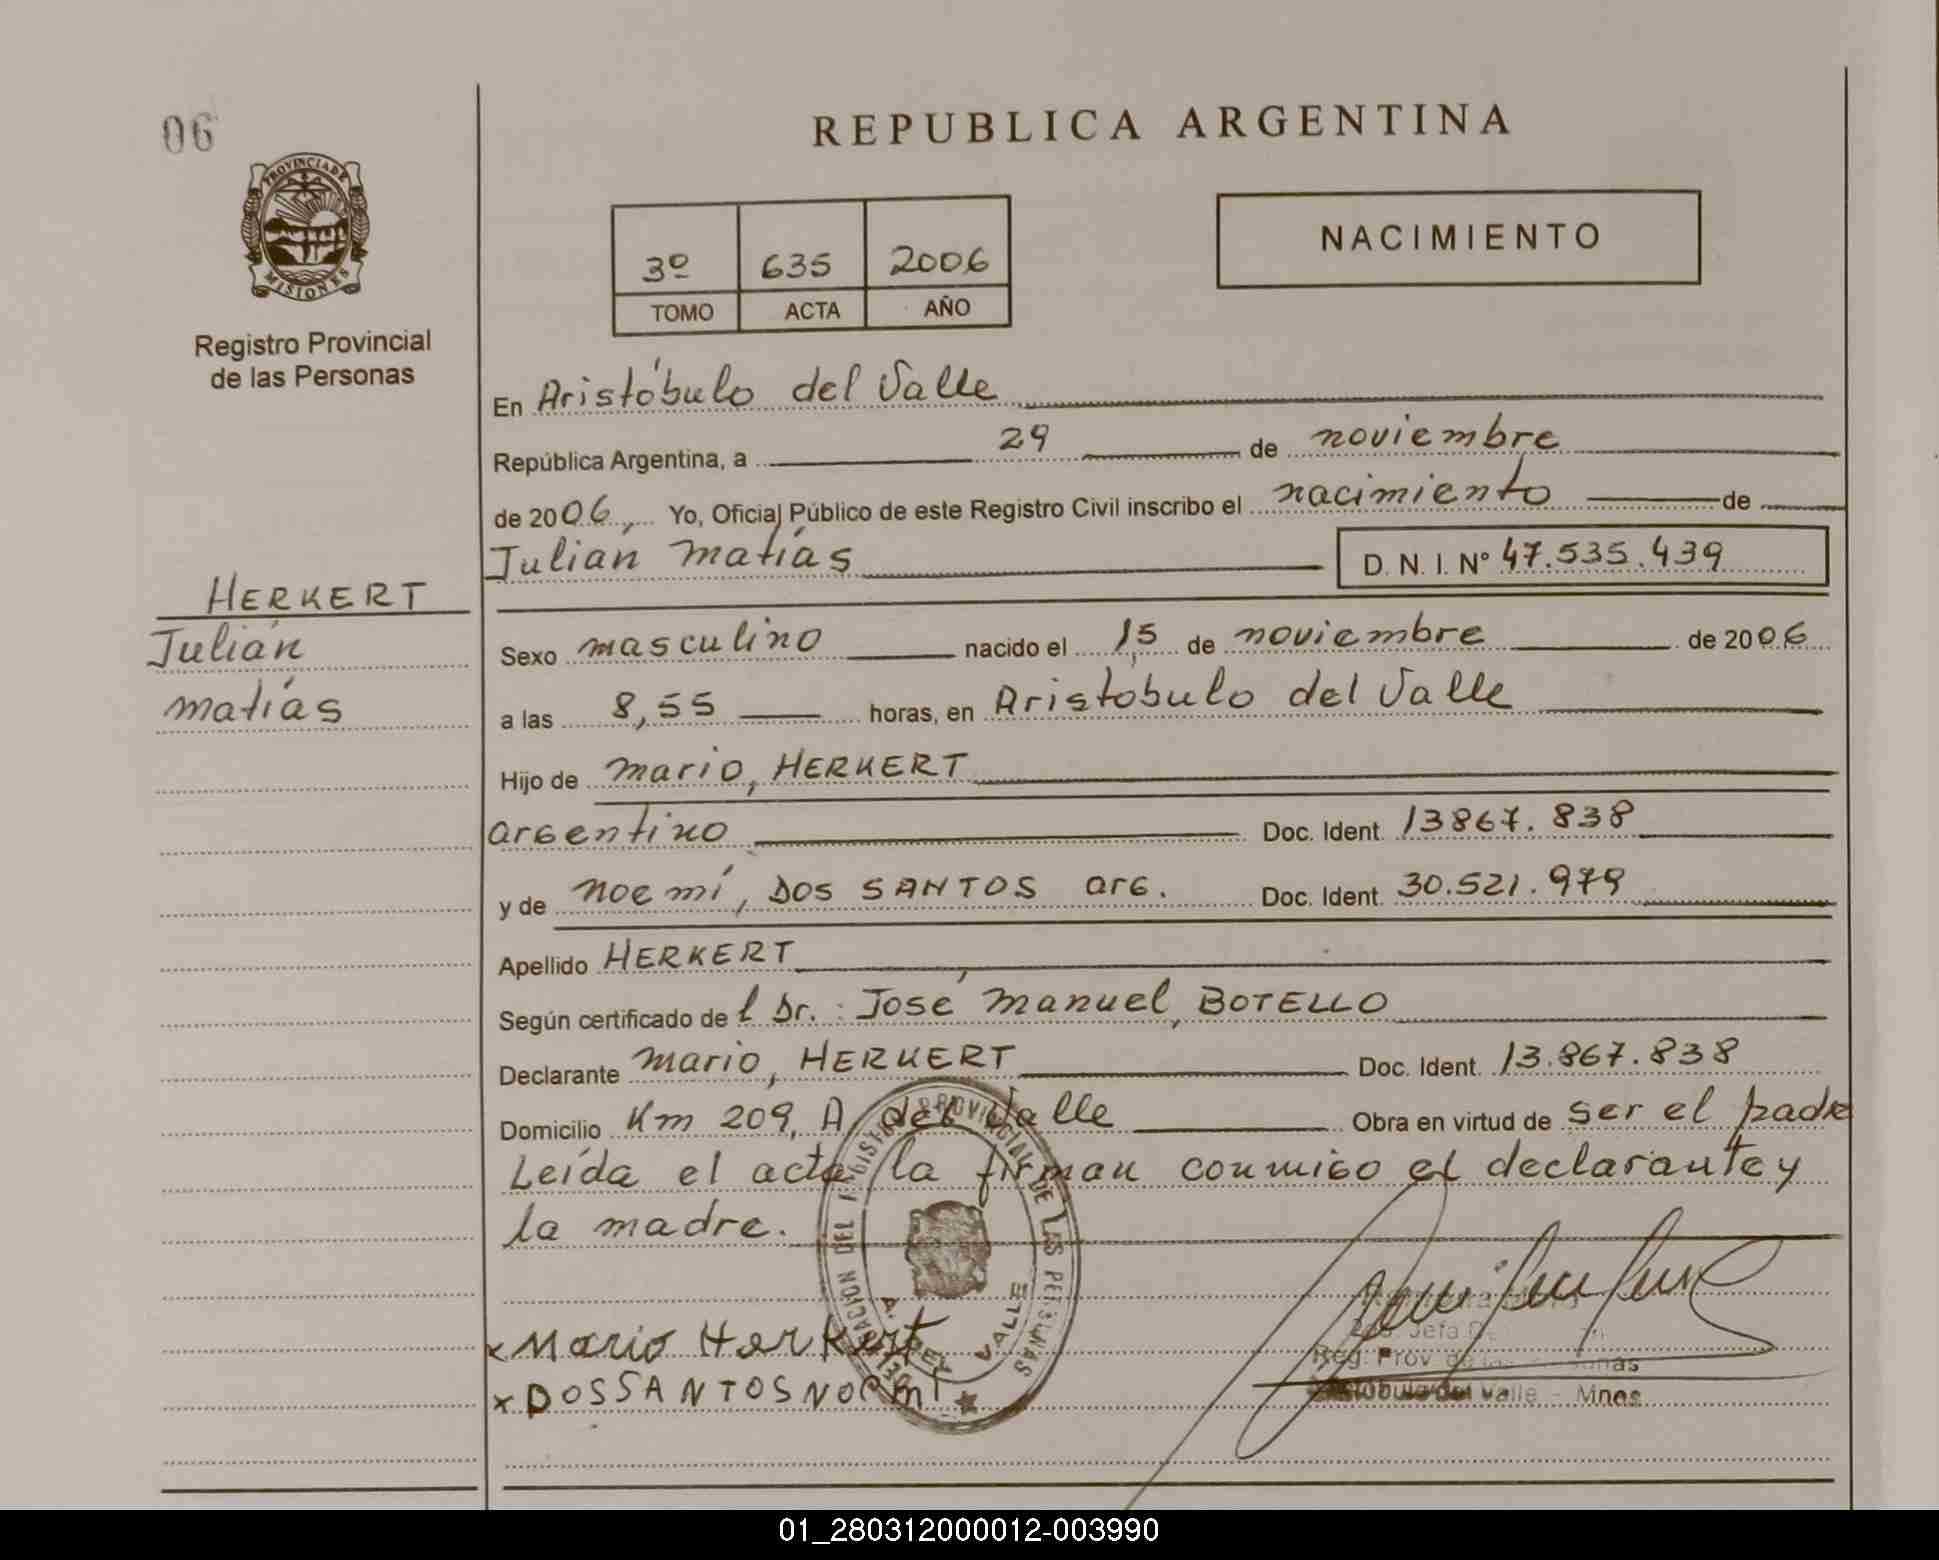 06
REPUBLICA ARGENTINA
PROVINCIA DE
MISIONES
Registro Provincial
de las Personas
3º 635 2006
TOMO ACTA AÑO
NACIMIENTO
En Aristóbulo del Valle
República Argentina, a 29 de noviembre
de 2006, Yo, Oficial Público de este Registro Civil inscribo el nacimiento de
Julián Matías D. N. I. Nº 47.535.439
HERKERT
Julián
Matías
Sexo masculino nacido el 15 de noviembre de 2006
a las 8,55 horas, en Aristóbulo del Valle
Hijo de Mario, HERKERT
argentino Doc. Ident. 13867.838
y de Noemí, DOS SANTOS arg. Doc. Ident. 30.521.979
Apellido HERKERT
Según certificado de l Dr.: José Manuel, BOTELLO
Declarante Mario, HERKERT Doc. Ident. 13.867.838
Domicilio Km 209, A. del Valle Obra en virtud de ser el padre
Leída el acta la firman conmigo el declarante y
la madre.
DELEGACION DEL REGISTRO PROVINCIAL DE LAS PERSONAS
A. DEL VALLE
x Mario Herkert
x DOSSANTOS NOEMI
Jefa
Reg. Prov. de las Personas
Aristóbulo del Valle - Mnes.
01_280312000012-003990